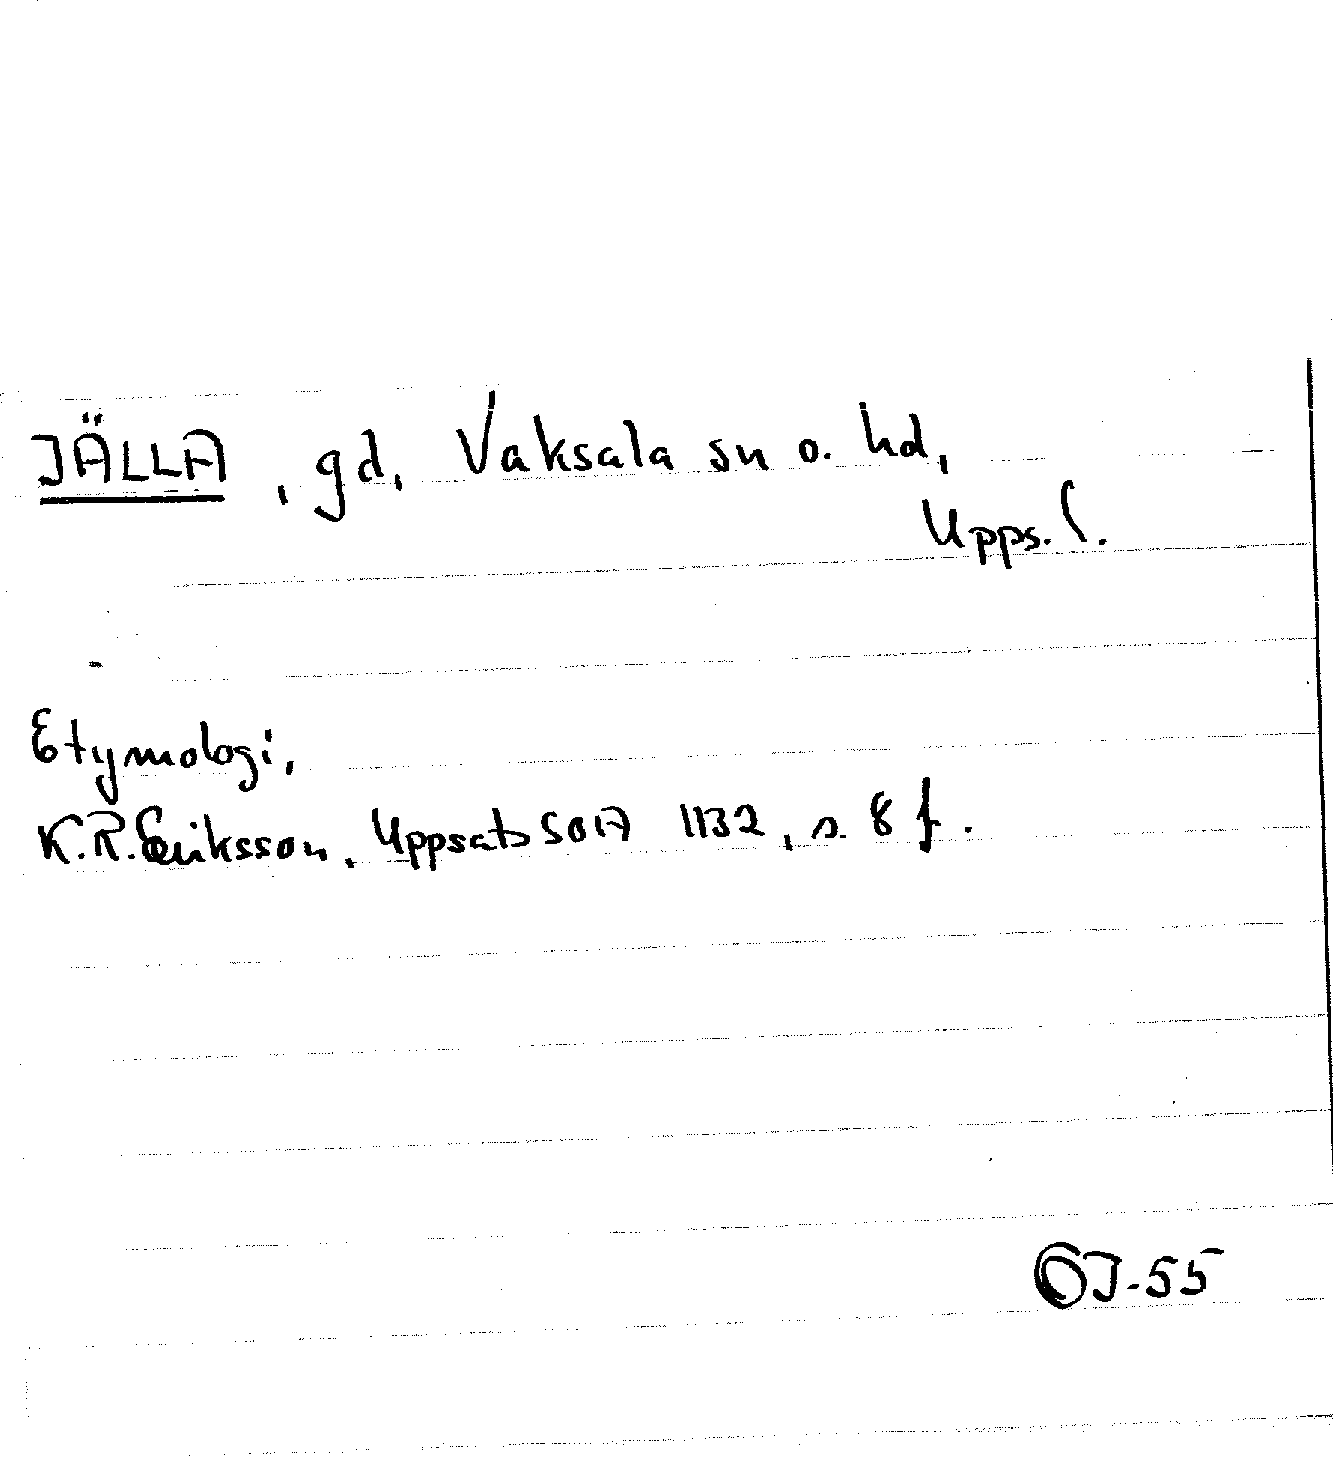 JÄLLA, gd, Vaksala sn o. hd,
Upps. l.
Etymologi,
K.R. Eriksson, Uppsats SOA 1132, s. 8 f.
OJ-55